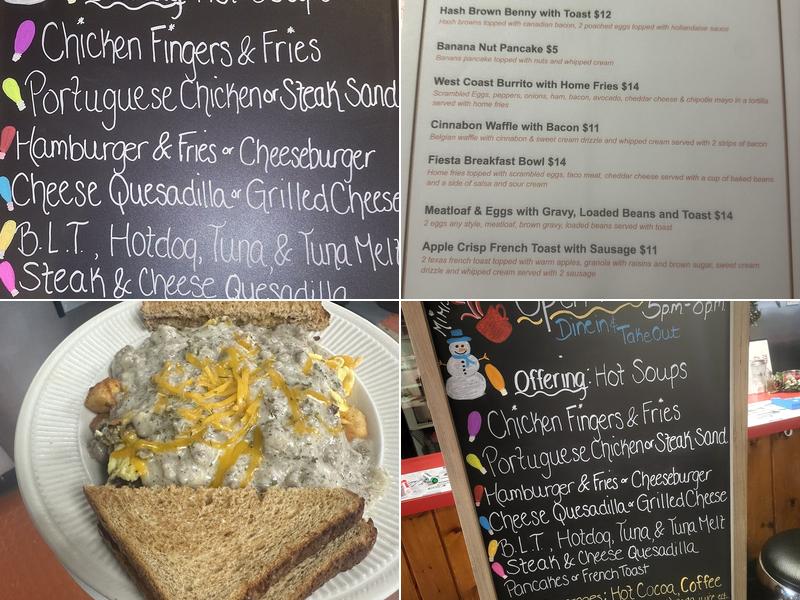 Hot Soups
Chicken Fingers & Fries
Portuguese Chicken or Steak Sand
Hamburger & Fries or Cheeseburger
Cheese Quesadilla or Grilled Cheese
B.L.T., Hotdog, Tuna, & Tuna Melt
Steak & Cheese Quesadilla
Hash Brown Benny with Toast $12
Hash browns topped with canadian bacon, 2 poached eggs topped with hollandaise sauce
Banana Nut Pancake $5
Banana pancake topped with nuts and whipped cream
West Coast Burrito with Home Fries $14
Scrambled Eggs, peppers, onions, ham, bacon, avocado, cheddar cheese & chipotle mayo in a tortilla
served with home fries
Cinnabon Waffle with Bacon $11
Belgian waffle with cinnabon & sweet cream drizzle and whipped cream served with 2 strips of bacon
Fiesta Breakfast Bowl $14
Home fries topped with scrambled eggs, taco meat, cheddar cheese served with a cup of baked beans
and a side of salsa and sour cream
Meatloaf & Eggs with Gravy, Loaded Beans and Toast $14
2 eggs any style, meatloaf, brown gravy, loaded beans served with toast
Apple Crisp French Toast with Sausage $11
2 texas french toast topped with warm apples, granola with raisins and brown sugar, sweet cream
drizzle and whipped cream served with 2 sausage
5pm-8pm
Dine in &
Take Out
Offering: Hot Soups
Chicken Fingers & Fries
Portuguese Chicken or Steak Sand
Hamburger & Fries or Cheeseburger
Cheese Quesadilla or Grilled Cheese
B.L.T., Hotdog, Tuna, & Tuna Melt
Steak & Cheese Quesadilla
Pancakes or French Toast
Hot Cocoa, Coffee